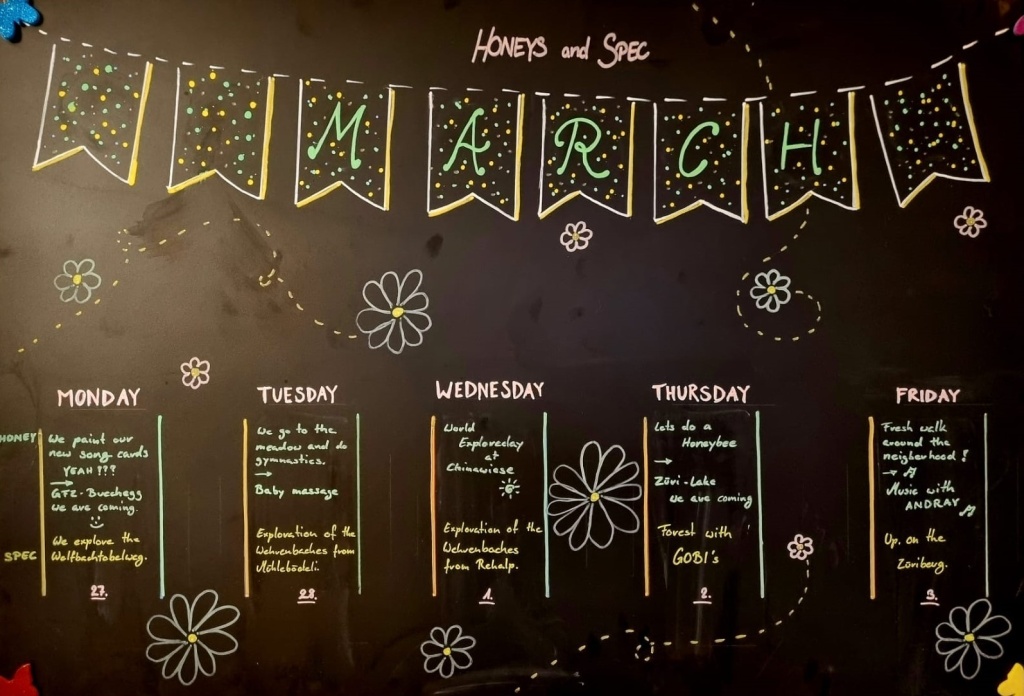 HONEYS and SPEC
MARCH
MONDAY
HONEY
We paint our
new song cards
YEAH !!!
→
GFZ - Buechegg
we are coming.
SPEC
We explore the
Wolfbachtobelweg.
27.
TUESDAY
We go to the
meadow and do
gymnastics.
→
Baby massage
Exploration of the
Wehrenbaches from
Mühlebödeli.
28.
WEDNESDAY
World
Exploreday
at
Chinawiese
Exploration of the
Wehrenbaches
from Rehalp.
1.
THURSDAY
Lets do a
Honeybee
→
Züri-Lake
we are coming
Forest with
GOBI's
2.
FRIDAY
Fresh walk
around the
neigherhood!
→
Music with
ANDRAY
Up. on the
Züriberg.
3.